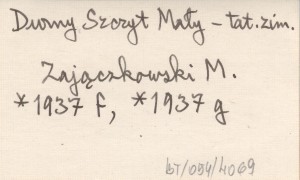 Durny Szczyt Mały – tat. zim.
Zajączkowski M.
*1937 f, *1937 g
bT/054/4069